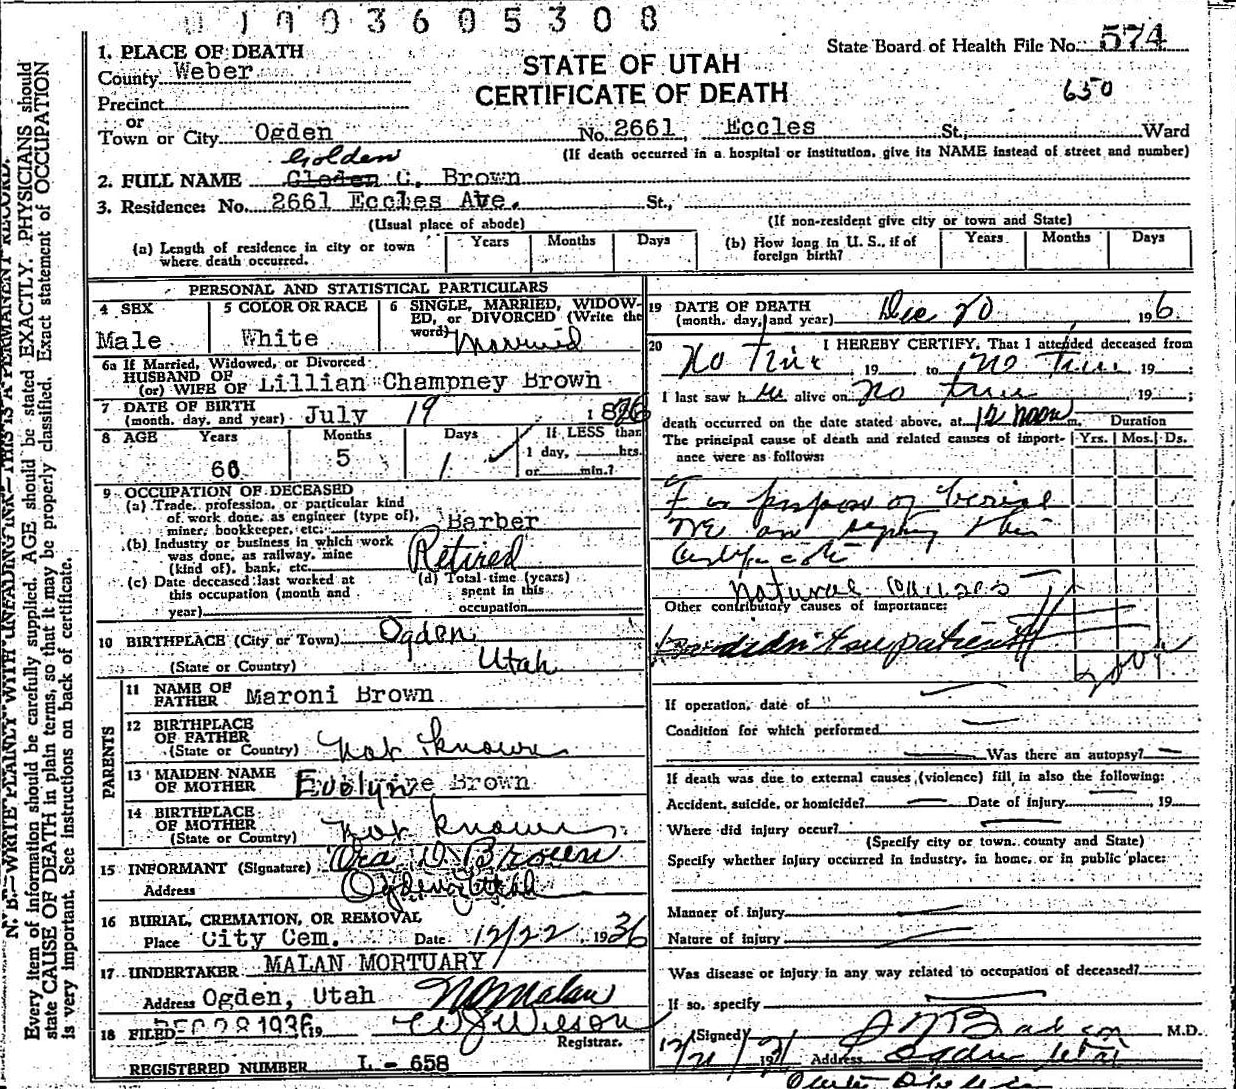 1903605308
State Board of Health File No. 574
1. PLACE OF DEATH
County Weber
STATE OF UTAH
CERTIFICATE OF DEATH
650
Precinct
or
Town or City Ogden No. 2661 Eccles St., Ward
(If death occurred in a hospital or institution, give its NAME instead of street and number)
Golden
2. FULL NAME Gloden C. Brown
3. Residence: No. 2661 Eccles Ave. St.,
(Usual place of abode) (If non-resident give city or town and State)
(a) Length of residence in city or town where death occurred. Years Months Days (b) How long in U. S., if of foreign birth? Years Months Days
PERSONAL AND STATISTICAL PARTICULARS
4 SEX
Male
5 COLOR OR RACE
White
6 SINGLE, MARRIED, WIDOW-
ED, or DIVORCED (Write the
word) Married
6a If Married, Widowed, or Divorced
HUSBAND OF
(or) WIFE OF Lillian Champney Brown
7 DATE OF BIRTH
(month, day, and year) July 19 1876
8 AGE Years Months Days If LESS than
1 day, hrs.
or min.?
60 5 1
9 OCCUPATION OF DECEASED
(a) Trade, profession, or particular kind
of work done, as engineer (type of),
miner, bookkeeper, etc. Barber
(b) Industry or business in which work
was done, as railway, mine
(kind of), bank, etc. Retired
(c) Date deceased last worked at
this occupation (month and
year)
(d) Total time (years)
spent in this
occupation
10 BIRTHPLACE (City or Town) Ogden
(State or Country) Utah
PARENTS
11 NAME OF
FATHER Maroni Brown
12 BIRTHPLACE
OF FATHER
(State or Country) Not known
13 MAIDEN NAME
OF MOTHER Evelyn Brown
14 BIRTHPLACE
OF MOTHER
(State or Country) Not known
15 INFORMANT (Signature) Ora D Brown
Address Ogden, Utah
16 BURIAL, CREMATION, OR REMOVAL
Place City Cem. Date 12/22, 1936
17 UNDERTAKER MALAN MORTUARY
Address Ogden, Utah
18 FILED DEC 28 1936 19 W J Wilson
Registrar.
REGISTERED NUMBER L - 658
19 DATE OF DEATH
(month, day, and year) Dec 20 1936
20 I HEREBY CERTIFY, That I attended deceased from
No Time, 19 , to No Time, 19 ;
I last saw h alive on no time, 19 ;
death occurred on the date stated above, at 12 noon m. Duration
The principal cause of death and related causes of import- Yrs. Mos. Ds.
ance were as follows:
For purpose of burial
we are signing this
certificate
Natural Causes
Other contributory causes of importance:
didn't see patient
If operation, date of
Condition for which performed
Was there an autopsy?
If death was due to external causes (violence) fill in also the following:
Accident, suicide, or homicide? Date of injury , 19
Where did injury occur?
(Specify city or town, county and State)
Specify whether injury occurred in industry, in home, or in public place:
Manner of injury
Nature of injury
Was disease or injury in any way related to occupation of deceased?
If so, specify
(Signed) M.D.
12/21/ Address Ogden Utah
N. B.—WRITE PLAINLY WITH UNFADING INK—THIS IS A PERMANENT RECORD.
Every item of information should be carefully supplied. AGE should be stated EXACTLY. PHYSICIANS should
state CAUSE OF DEATH in plain terms, so that it may be properly classified. Exact statement of OCCUPATION
is very important. See instructions on back of certificate.